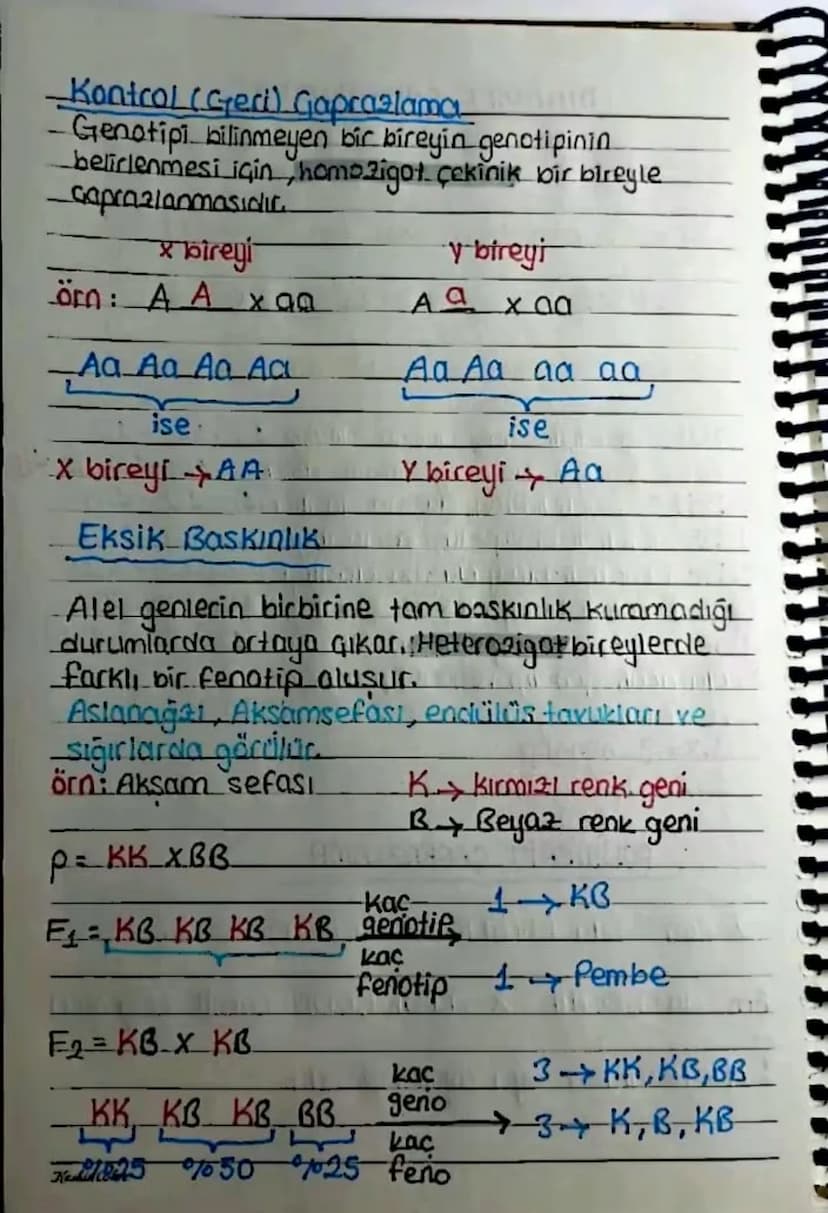 Kontrol (Geri) Çaprazlama
- Genotipi bilinmeyen bir bireyin genotipinin
belirlenmesi için, homozigot çekinik bir bireyle
çaprazlanmasıdır.
x bireyi y bireyi
örn: A A x aa A a x aa
Aa Aa Aa Aa Aa Aa aa aa
ise ise
x bireyi → AA Y bireyi → Aa
Eksik Baskınlık
- Alel genlerin birbirine tam baskınlık kuramadığı
durumlarda ortaya çıkar. Heterozigot bireylerde
farklı bir fenotip oluşur.
Aslanağzı, Akşamsefası, endülüs tavukları ve
sığırlarda görülür.
örn: Akşam sefası K → kırmızı renk geni
B → Beyaz renk geni
P = KK X BB
F1 = KB KB KB KB kaç genotip 1 → KB
kaç fenotip 1 → Pembe
F2 = KB X KB
KK KB KB BB kaç geno 3 → KK, KB, BB
%25 %50 %25 kaç feno → 3 → K, B, KB